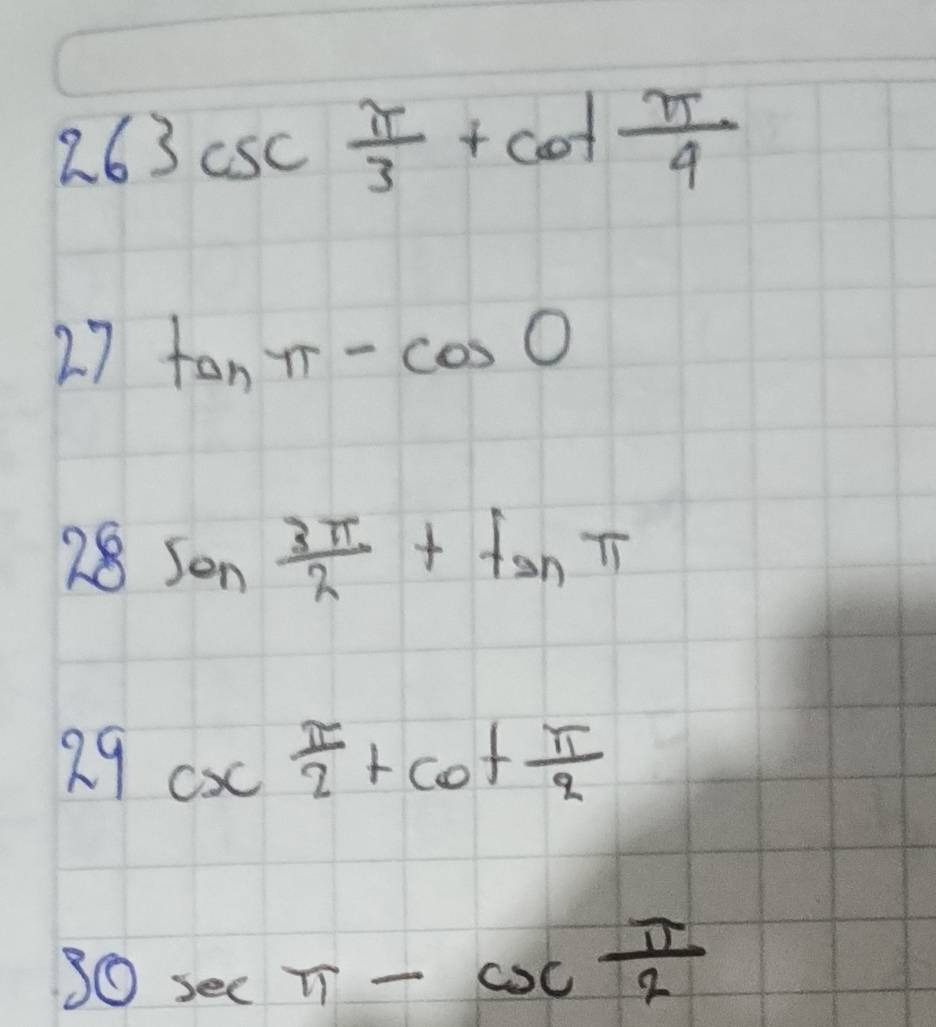 26 3 csc π/3 + cot π/4
27 tan π - cos 0
28 sen 3π/2 + tan π
29 csc π/2 + cot π/2
30 sec π - csc π/2